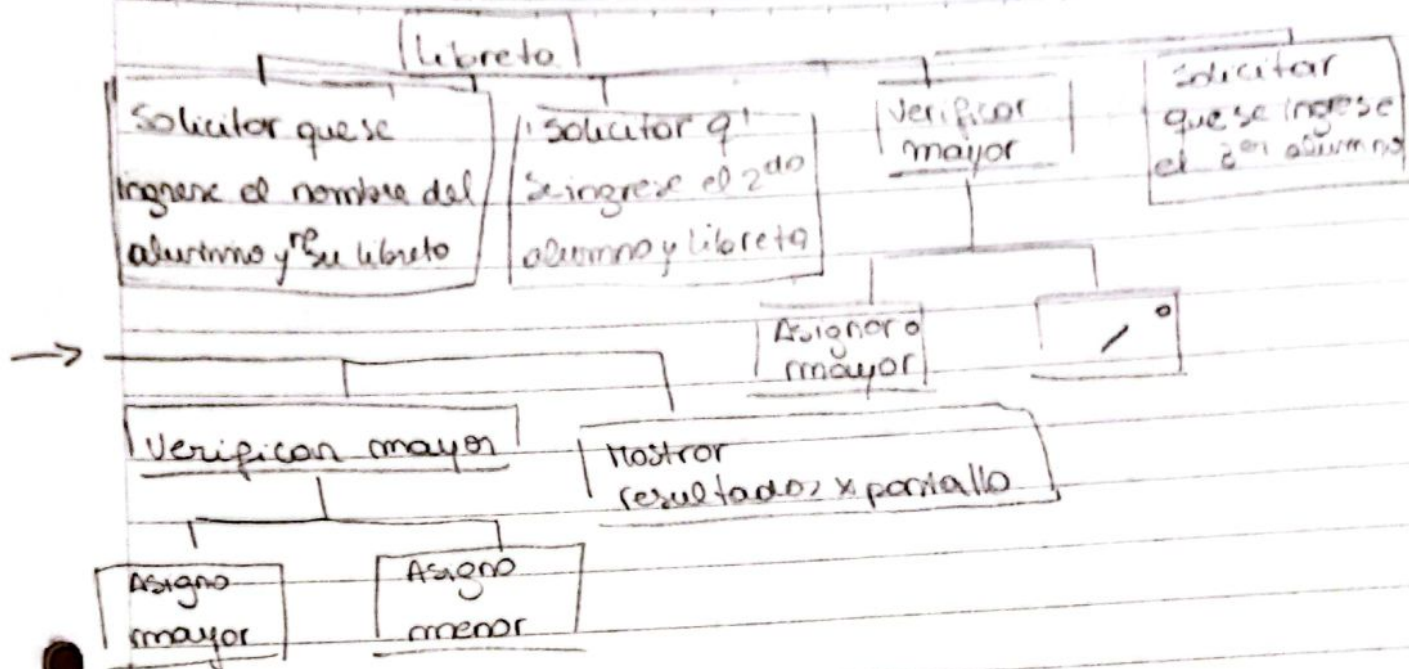 Libreta
Solicitar que se
ingrese el nombre del
alumno y nº su libreta
Solicitar q'
se ingrese el 2do
alumno y libreta
Verificar
mayor
Solicitar
que se ingrese
el 3er alumno
Asignar a
mayor
Verifican mayor
Mostrar
resultados x pantalla
Asigno
mayor
Asigno
menor